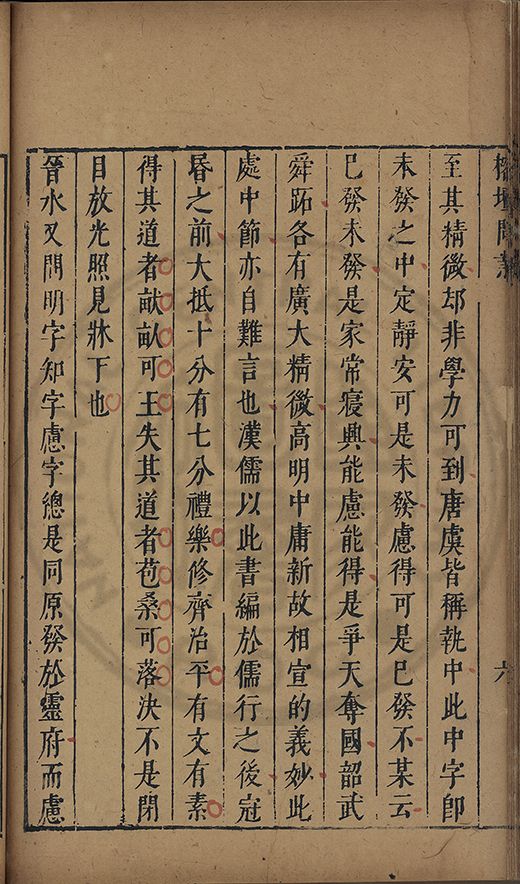 榕壇問業
六
至其精微却非學力可到唐虞皆稱執中此中字卽
未發之中定靜安可是未發慮得可是已發不某云
已發未發是家常寢興能慮能得是爭天奪國韶武
舜跖各有廣大精微高明中庸新故相宣的義妙此
處中節亦自難言也漢儒以此書編於儒行之後冠
昏之前大抵十分有七分禮樂修齊治平有文有素
得其道者畎畝可王失其道者苞桑可落決不是閉
目放光照見牀下也
晉水又問明字知字慮字總是同原發於靈府而慮